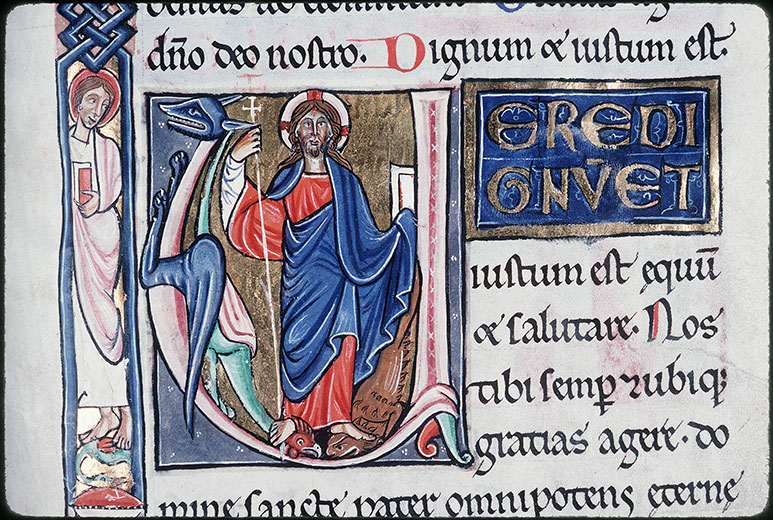 dño deo nostro. Dignum & iustum est.
VEREDI
GNV̄ET
iustum est ęquū
& salutare. Nos
tibi semꝑ ⁊ubiq;
gratias agere. do
mine sancte pater omnipotens eterne